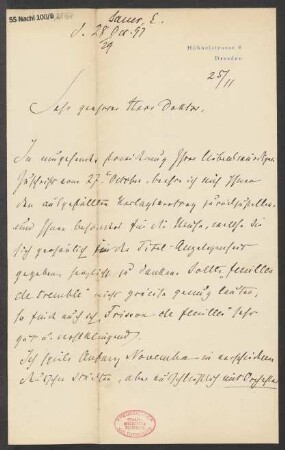 55 Nachl 100/B
Sauer, E.
d. 28 Oct. 97
29
Hübnelstrasse 8
Dresden
25/11
Sehr geehrter Herr Doktor,
In umgehender Erwiderung Ihrer liebenswürdigen
Zuschrift vom 27. October, beehre ich mich Ihnen
den ausgefüllten Verlagsvertrag zurückzustellen
und Ihnen besonders für die Mühe, welche Sie
sich gefälligst für die Titel-Angelegenheit
gegeben, herzlichst zu danken. Sollte "feuilles
de tremble" nicht präcise genug lauten,
so finde auch ich, "Frisson de feuilles" sehr
gut u. wohlklingend.
Ich spiele Anfang November in verschiedenen
Städten, aber ausschliesslich mit Orchester